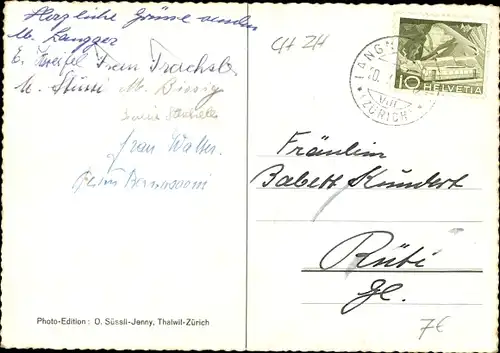 Herzliche Grüsse senden
M. Langger
E. Frau Trachsl
M. Stüssi M. Bissig
Frau Walter
Bernasconi
CH ZH
LANGN
10
ZÜRICH
10 HELVETIA
Fräulein
Babett Kundert
Rüti
Gl.
7€
Photo-Edition: O. Süssli-Jenny, Thalwil-Zürich